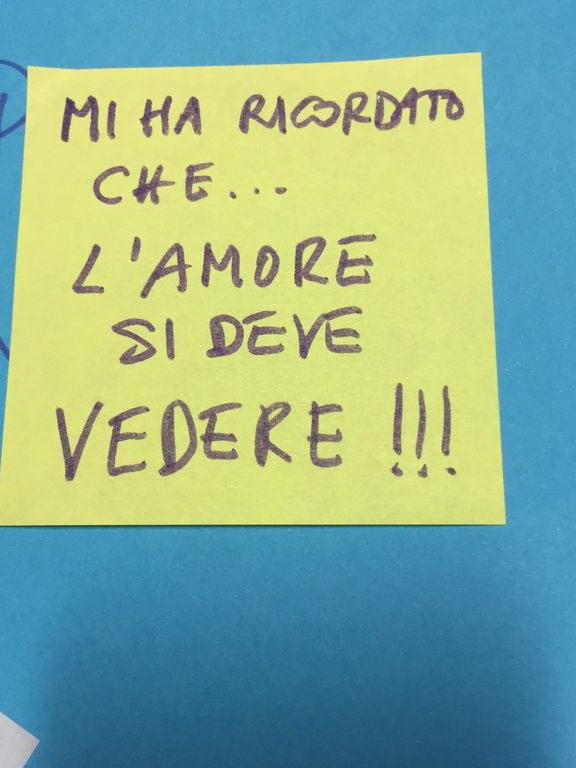 MI HA RICORDATO
CHE...
L'AMORE
SI DEVE
VEDERE !!!